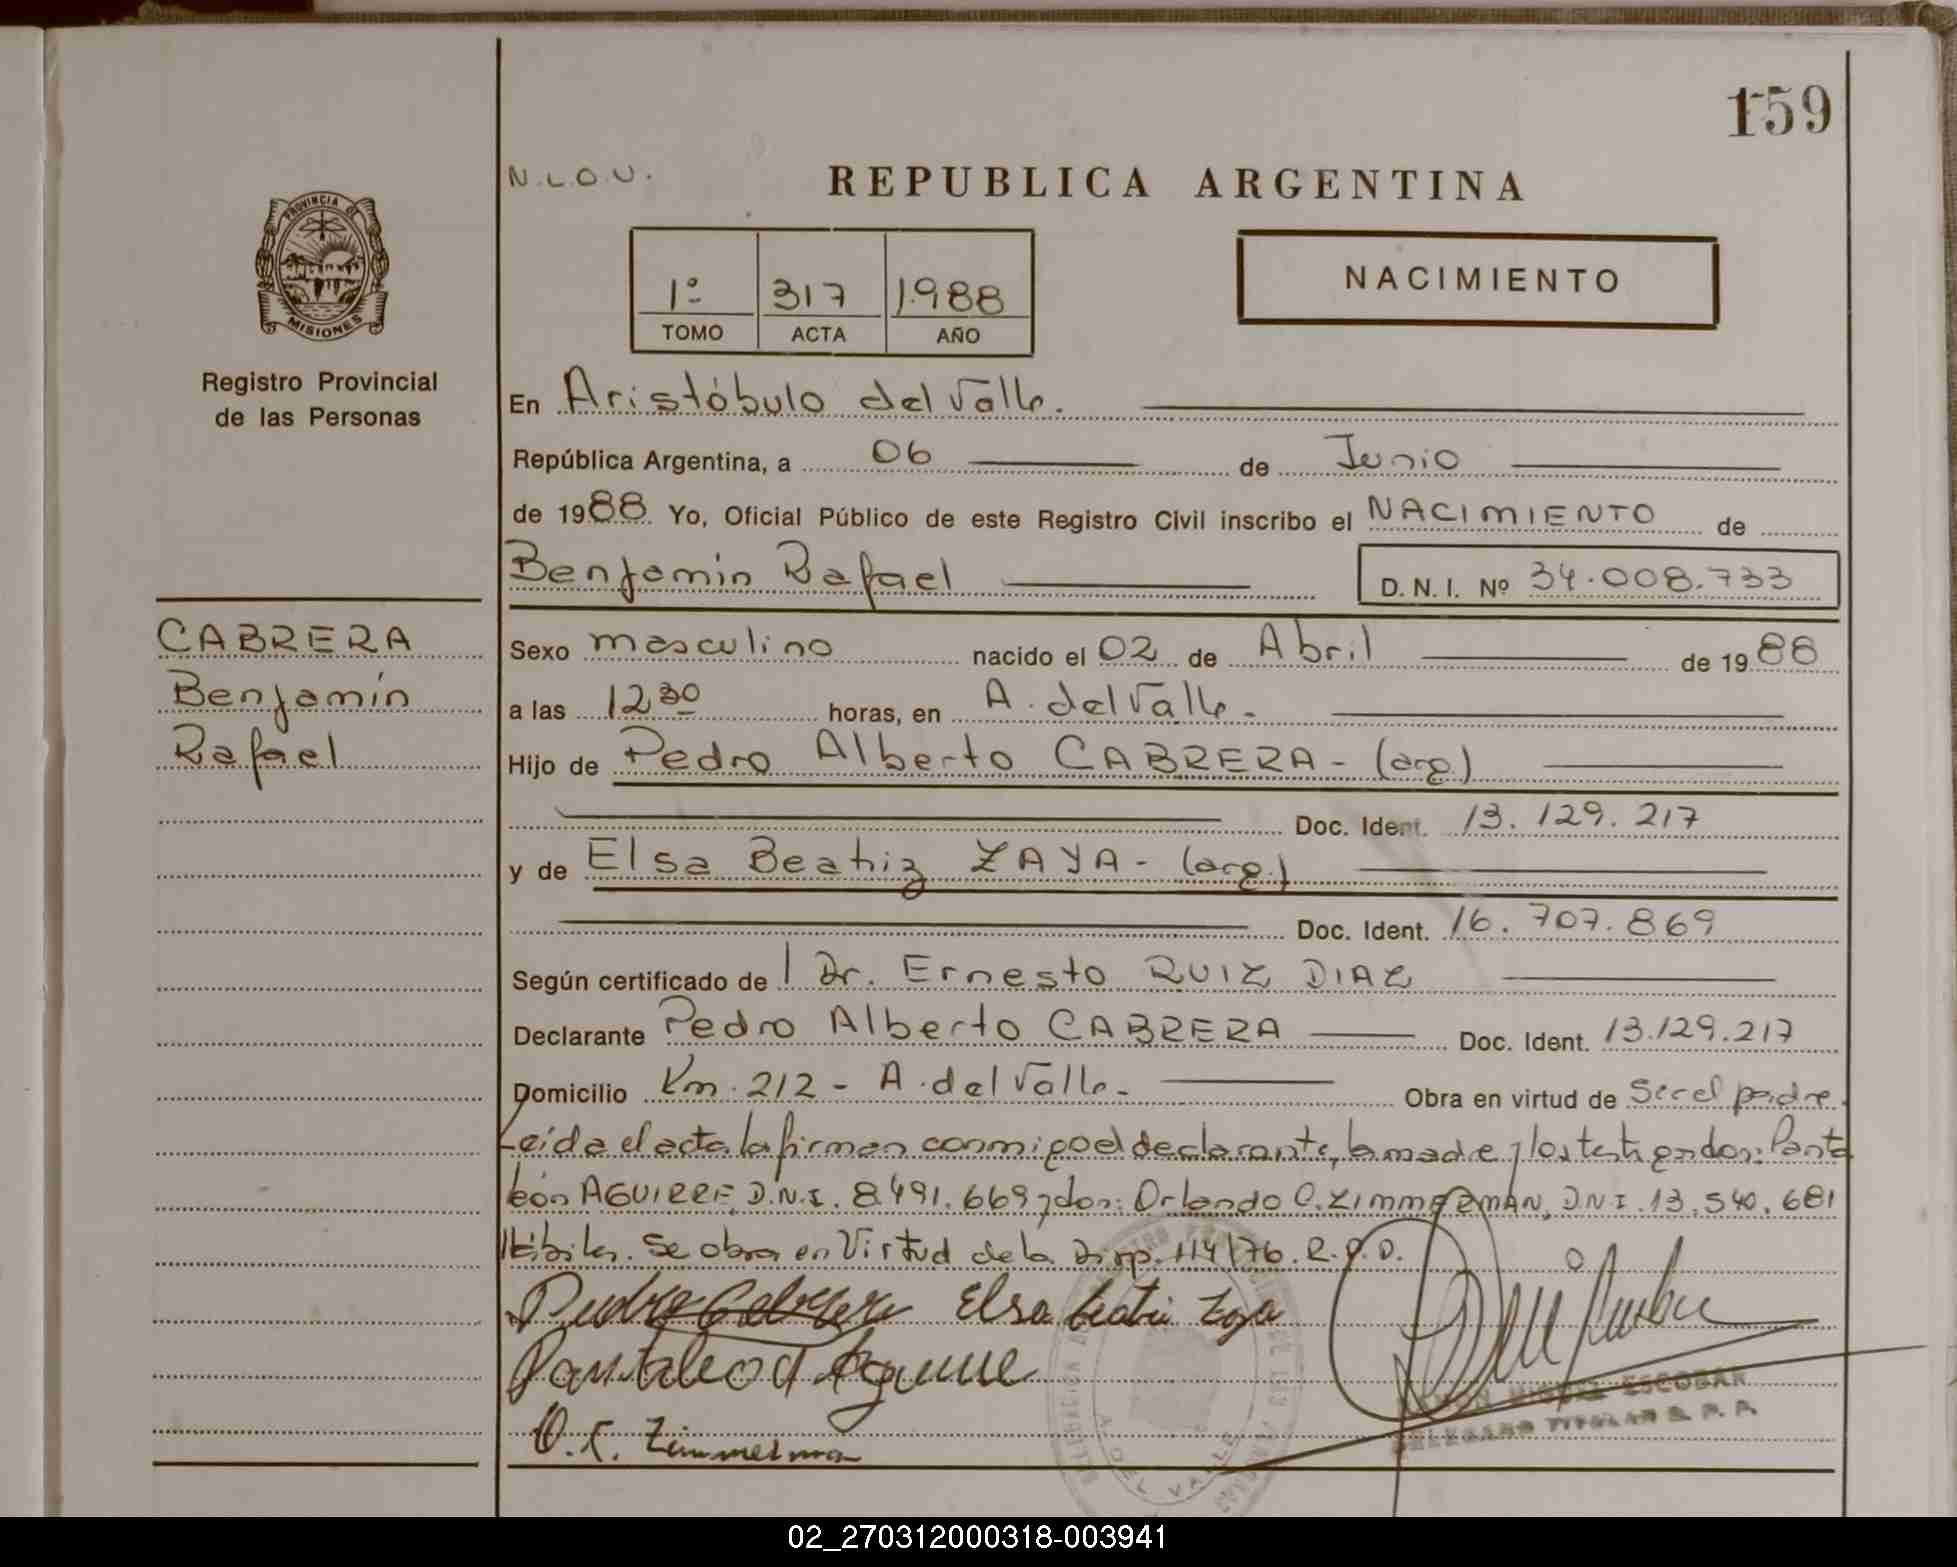 159
N.L.O.U.
REPUBLICA ARGENTINA
PROVINCIA DE
MISIONES
Registro Provincial
de las Personas
1º 317 1.988
TOMO ACTA AÑO
NACIMIENTO
En Aristóbulo del Valle.
República Argentina, a 06 de Junio
de 1988. Yo, Oficial Público de este Registro Civil inscribo el NACIMIENTO de
Benjamín Rafael D. N. I. Nº 34.008.733
CABRERA
Benjamín
Rafael
Sexo masculino nacido el 02 de Abril de 1988
a las 12 30 horas, en A. del Valle.
Hijo de Pedro Alberto CABRERA - (arg.)
Doc. Ident. 13.129.217
y de Elsa Beatriz ZAYA - (arg.)
Doc. Ident. 16.707.869
Según certificado de l Dr. Ernesto RUIZ DIAZ
Declarante Pedro Alberto CABRERA Doc. Ident. 13.129.217
Domicilio Km. 212 - A. del Valle. Obra en virtud de ser el padre.
Leída el acta la firman conmigo el declarante, la madre y los testigos don: Panta
león AGUIRRE, D.N.I. 8.491.669 y don: Orlando C. ZIMMERMAN, D.N.I. 13.540.681
Hábiles. Se obra en Virtud de la Disp. 114/76. R.P.P.
Pedro Cabrera Elsa Beatriz Zaya
Pantaleon Aguirre
RAMON MIGUEL ESCOBAR
DELEGADO TITULAR R. P. P.
O. C. Zimmerman
A. DEL VALLE
02_270312000318-003941